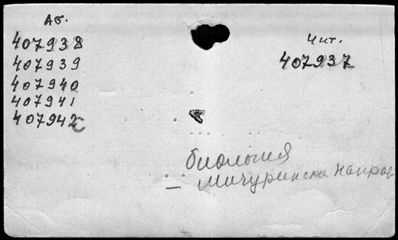 Аб.
407938
407939
407940
407941
407942
Чит.
407937
биология
– Мичуринско направ